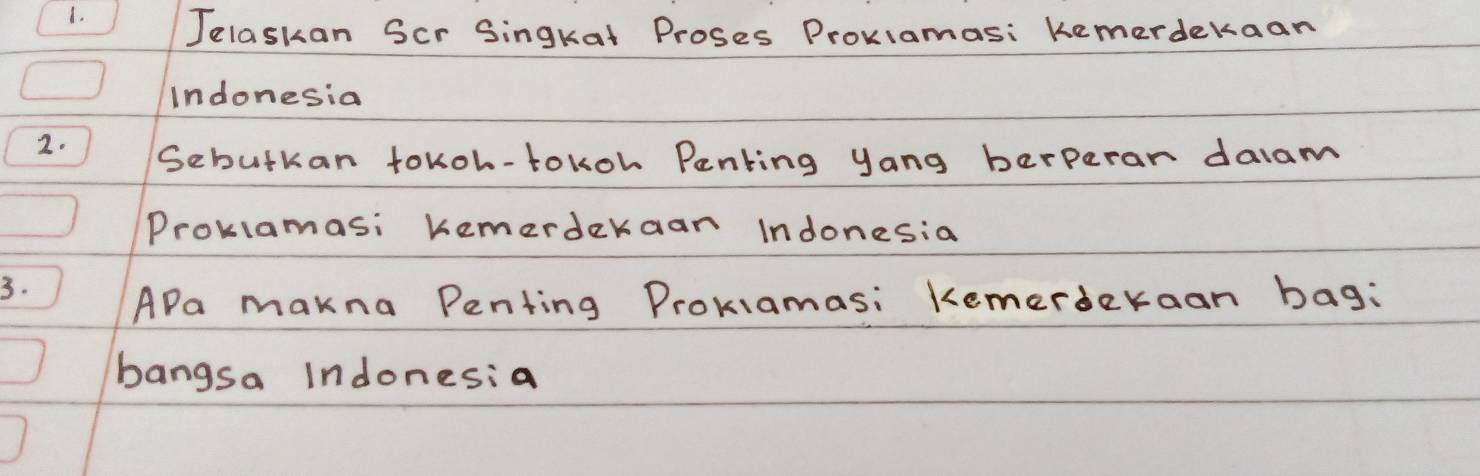 1. Jelaskan Scr Singkat Proses Proklamasi Kemerdekaan
Indonesia
2. Sebutkan tokoh-tokoh Penting yang berperan dalam
Proklamasi Kemerdekaan Indonesia
3. Apa makna Penting Proklamasi Kemerdekaan bagi
bangsa Indonesia